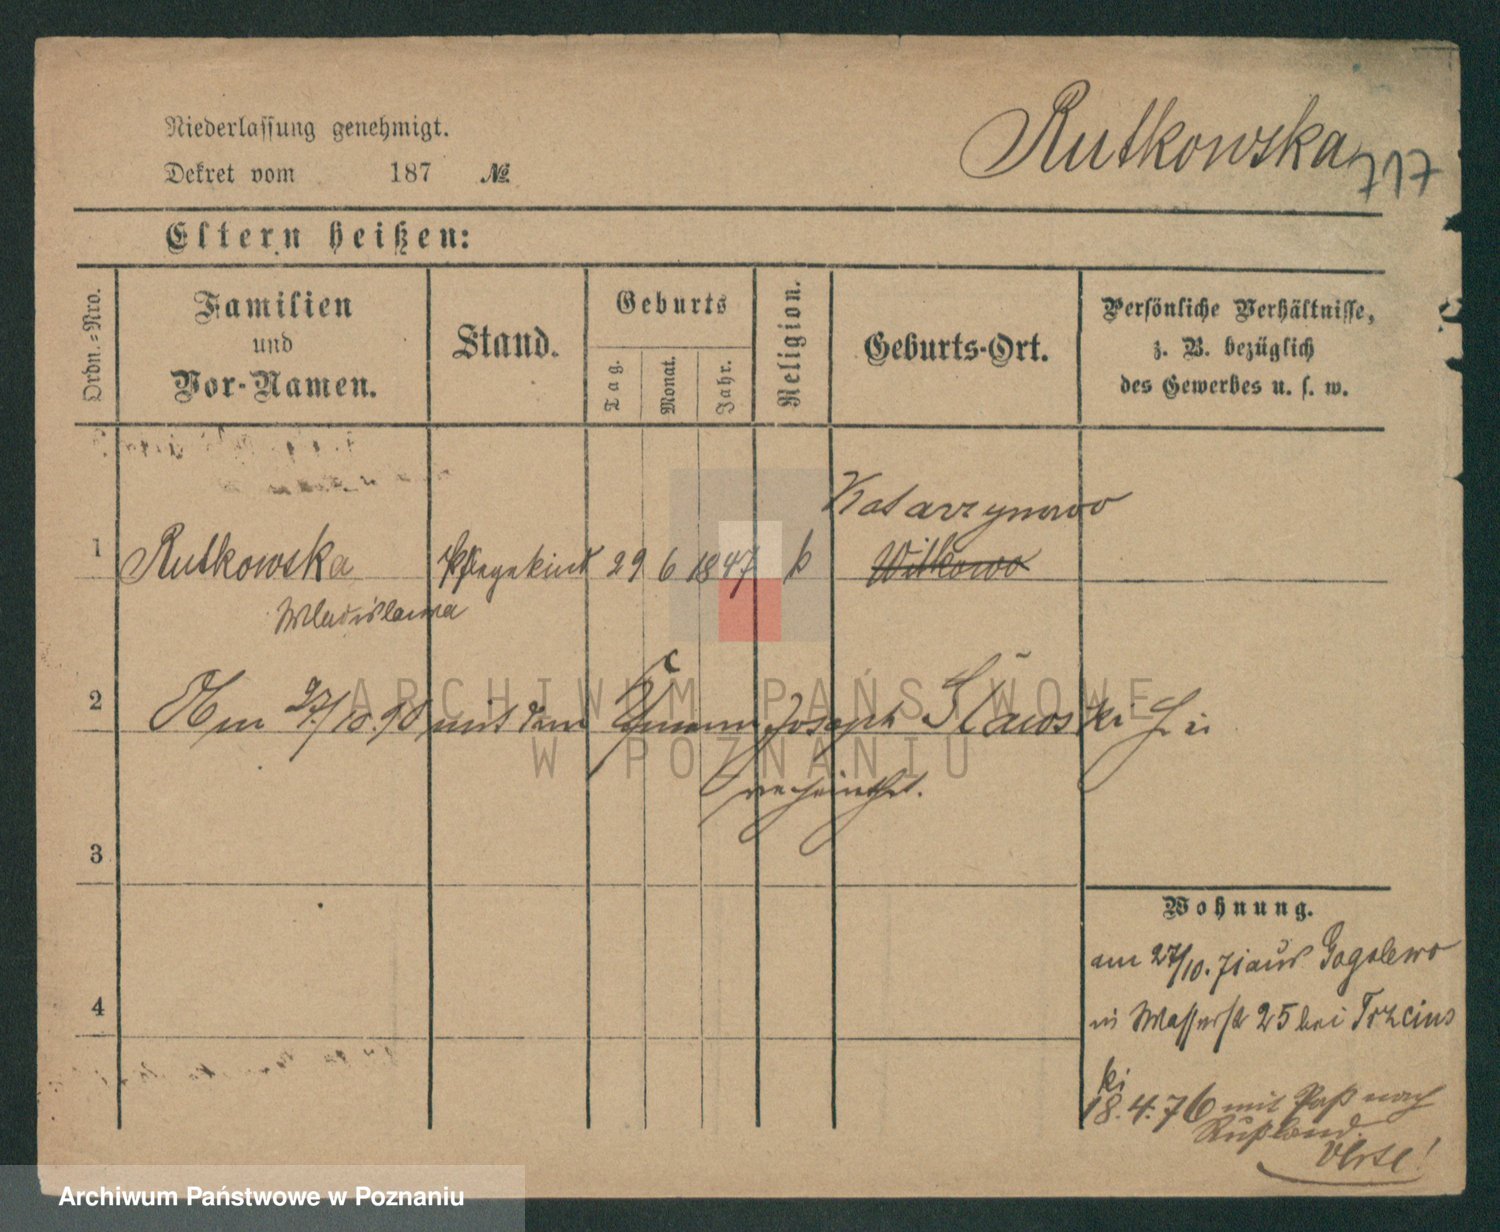 Rutkowska
717
Niederlassung genehmigt.
Dekret vom 187 №
Eltern heißen:
Ordn.-Nro.
Familien und Vor-Namen.
Stand.
Geburts
Tag.
Monat.
Jahr.
Religion.
Geburts-Ort.
Persönliche Verhältnisse,
z. B. bezüglich
des Gewerbes u. s. w.
Katarzynowo
1 Rutkowska Pflegekind 29 6 1847 k Witkowo
Wladislawa
2 Am 27/10.90 mit dem Joseph Sławski
verheirathet.
3
4
Wohnung.
am 27/10.71 aus Gogolewo
in Wasserstr 25 bei Trzcins
ki
18.4.76 mit Paß nach
Rußland.
ARCHIWUM PAŃSTWOWE
W POZNANIU
Archiwum Państwowe w Poznaniu